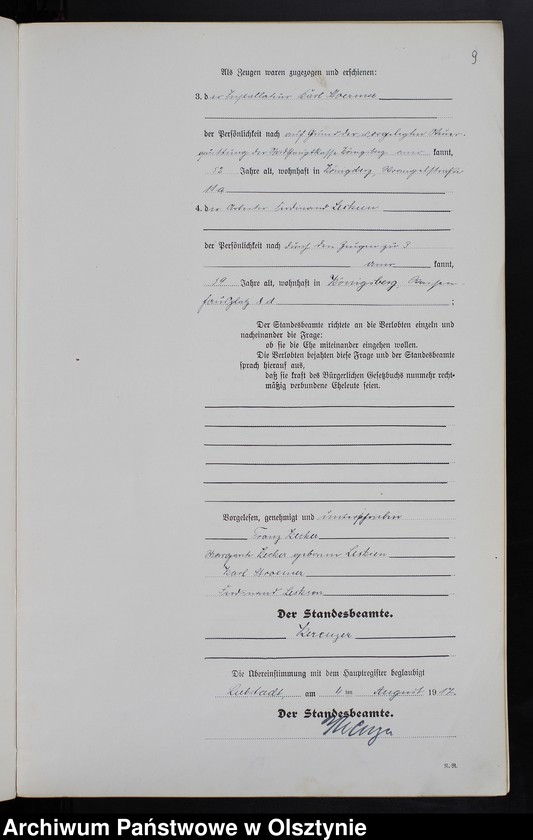 9
Als Zeugen waren zugezogen und erschienen:
3. der Installateur Karl
der Persönlichkeit nach auf Grund der vorgelegten Steuer-
quittung der Königsberg kannt,
52 Jahre alt, wohnhaft in Königsberg, Wrangelstraße
11a
4. der Arbeiter Ferdinand Leskien
der Persönlichkeit nach durch den Zeugen zu 3
aner kannt,
59 Jahre alt, wohnhaft in Königsberg,
platz 8 d ;
Der Standesbeamte richtete an die Verlobten einzeln und
nacheinander die Frage:
ob sie die Ehe miteinander eingehen wollen.
Die Verlobten bejahten diese Frage und der Standesbeamte
sprach hierauf aus,
daß sie kraft des Bürgerlichen Gesetzbuchs nunmehr recht-
mäßig verbundene Eheleute seien.
Vorgelesen, genehmigt und unterschrieben
Franz Zecher
Margarete Zecher geborene Leskien
Karl
Ferdinand Leskien
Der Standesbeamte.
Die Übereinstimmung mit dem Hauptregister beglaubigt
Liebstadt, am 4ten August 1917.
Der Standesbeamte.
R.R.
Archiwum Państwowe w Olsztynie